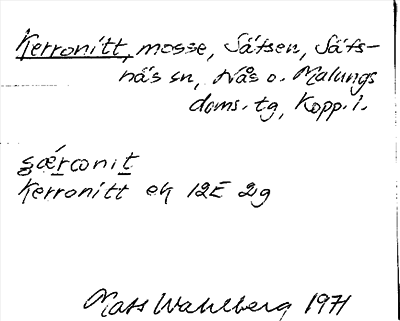 Kerronitt, mosse, Säfsen, Säfs-
näs sn, Nås o. Malungs
doms. tg, Kopp. l.
s̱ǽ̱ṟconiṯ
Kerronitt ek 12E 2g
Mats Wahlberg 1971